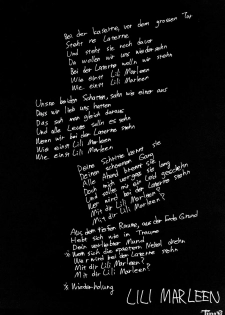 Bei der Kaserne, vor dem grossen Tor
Steht 'ne Laterne
Und steht sie noch davor
Da wollen wir uns wiedersehn
Bei der Laterne wolln wir stehn
Wie einst Lili Marleen
Wie einst Lili Marleen
Unsre beiden Schatten, sahn wie einer aus
Dass wir lieb uns hatten
Das sah man gleich daraus
Und alle Leute solln es sehn
Wenn wir bei der Laterne stehn
Wie einst Lili Marleen
Wie einst Lili Marleen
Deine Schritte kennt sie
Deinen schoenen Gang
Alle Abend brennt sie
Doch mich vergass sie lang
Und sollte mir ein Leid geschehn
Wer wird bei der Laterne stehn
Mit dir Lili Marleen?
Mit dir Lili Marleen?
Aus dem tiefen Raume, aus der Erde Grund
Hebt sich wie im Traume
Dein verliebter Mund
※ Wenn sich die spaeten Nebel drehn
Wer wird bei der Laterne stehn
Mit dir Lili Marleen?
Mit dir Lili Marleen?
※ Wiederholung
LILI MARLEEN